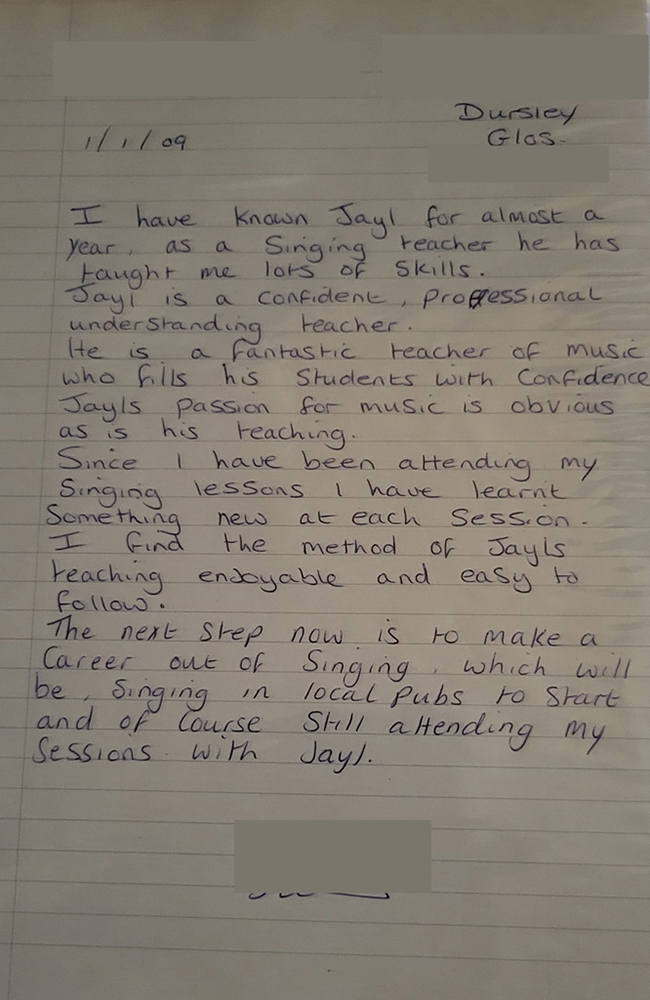 Dursley
1/1/09
Glos.
I have known Jayl for almost a
year, as a Singing teacher he has
taught me lots of skills.
Jayl is a confident, professional
understanding teacher.
He is a fantastic teacher of music
who fills his students with confidence
Jayls passion for music is obvious
as is his teaching.
Since I have been attending my
Singing lessons I have learnt
Something new at each Session.
I find the method of Jayls
teaching enjoyable and easy to
follow.
The next step now is to make a
Career out of Singing, which will
be, Singing in local pubs to Start
and of Course Still attending my
Sessions with Jayl.